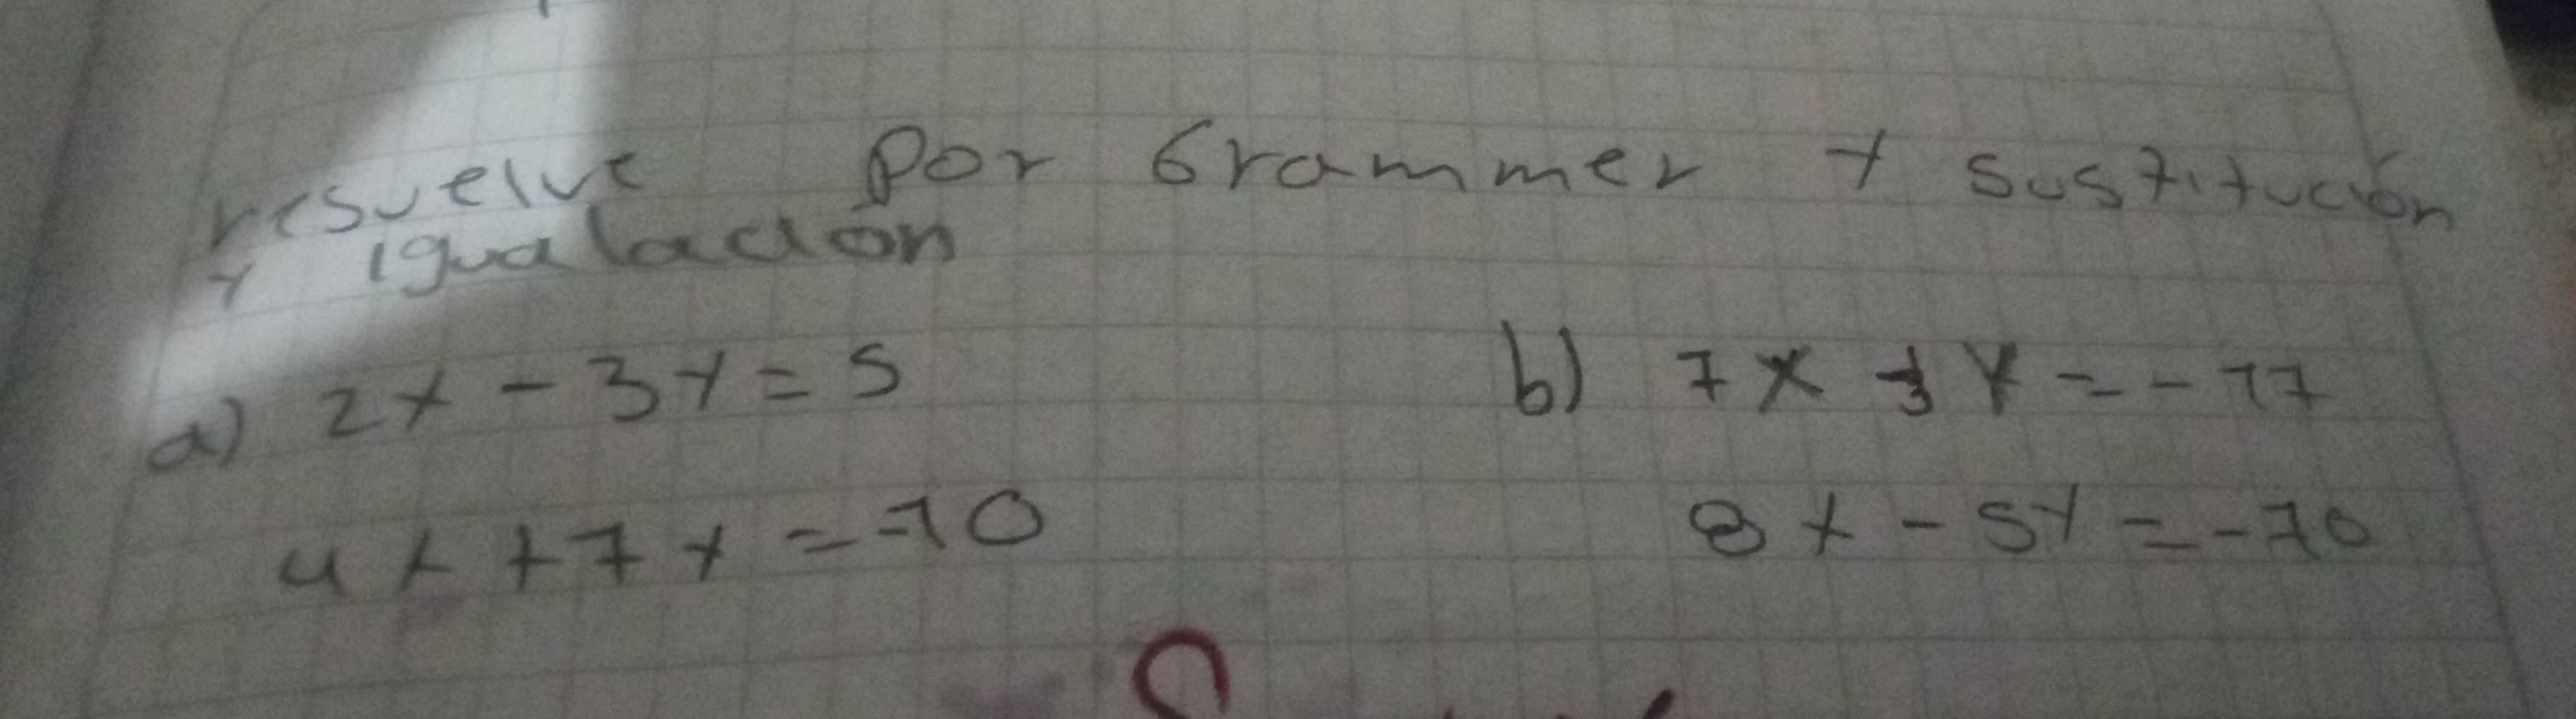 resuelve por Grammer y sustitución
y igualación
a) 2x - 3y = 5 b) 7x + 3y = - 17
4x + 7y = -10 8x - 5y = -70